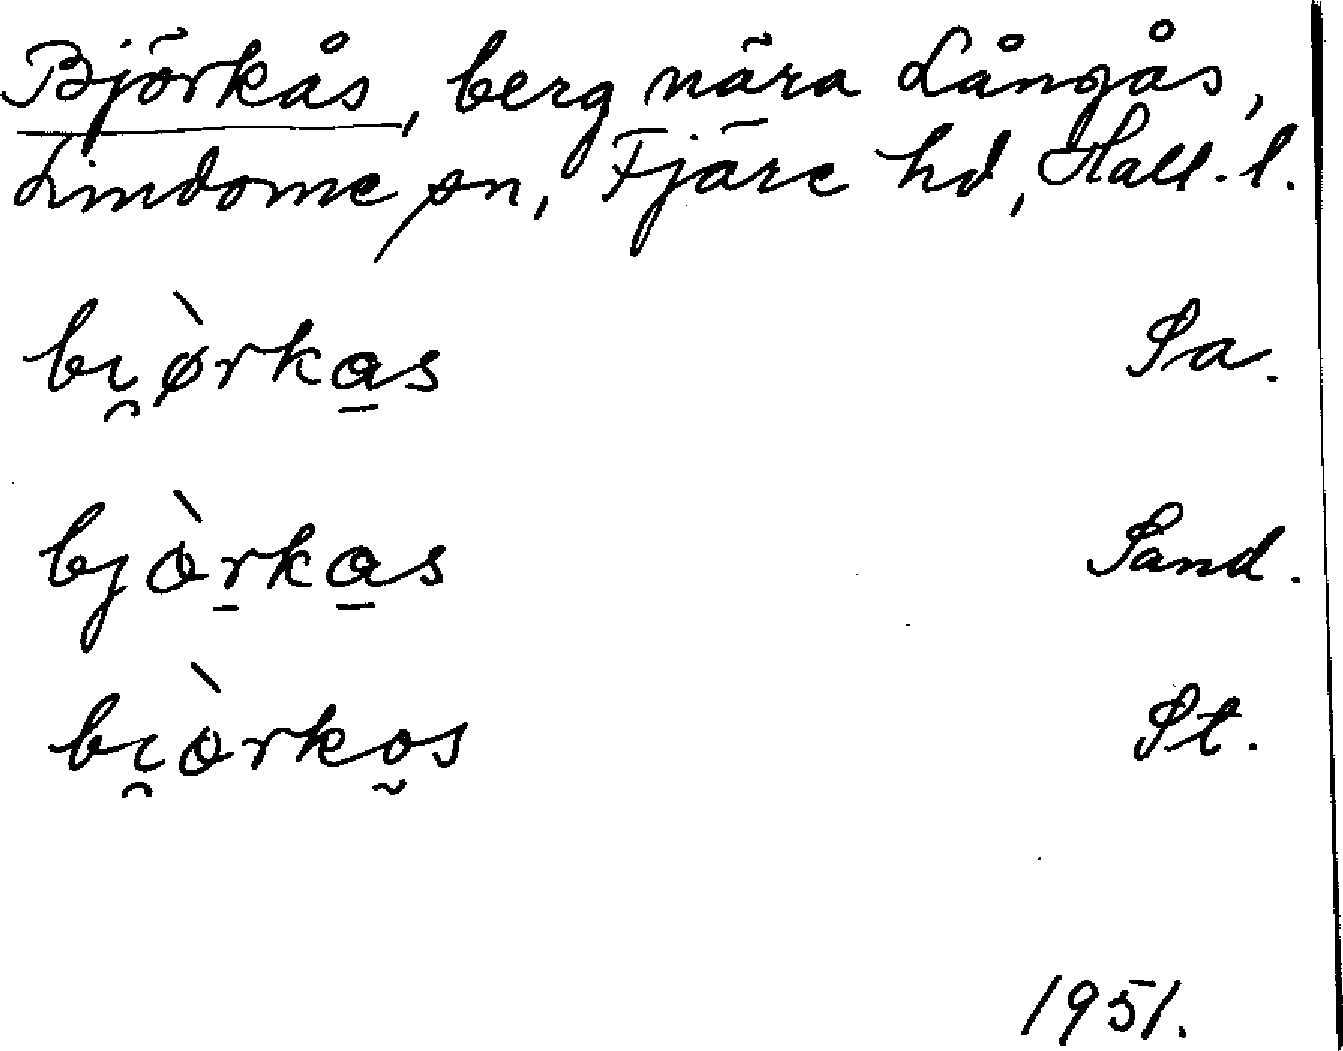 Björkås, berg nära Långås,
Lindome sn, Fjäre hd, Hall. l.
bi̯ø̀rka̠s Sa.
bjòr̠ka̠s Sand.
bi̯òrko̬s St.
1951.